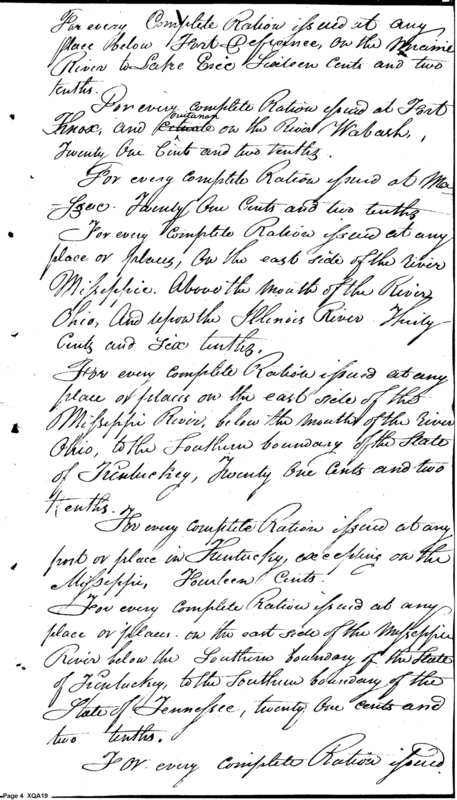 For every Complete Ration issued at any
place below Fort Defiance, on the Miamie
River to Lake Erie Sixteen Cents and two
tenths.
For every complete Ration issued at Fort
ouitanon
Knox, and on the River Wabash,
Twenty One Cents and two tenths.
For every complete Ration issued at Ma-
-ssac. Twenty One Cents and two tenths
For every Complete Ration issued at any
place or places, on the east side of the river
Missippie. Above the mouth of the River
Ohio, And upon the Illinois River Thirty
Cents and Six tenths.
For every complete Ration issued at any
place or places on the east side of the
Misseppi River, below the mouth of the river
Ohio, to the Southern boundary of the State
of Kentuckey, Twenty One Cents and two
tenths.
For every complete Ration issued at any
post or place in Kentucky, excepting on the
Misseppie, Fourteen Cents.
For every complete Ration issued at any
place or places on the east side of the Misseppie
River below the Southern boundary of the State
of Kentuckey, to the Southern boundary of the
State of Tennessee, twenty One cents and
two tenths.
For every complete Ration issued
Page 4 XQA19